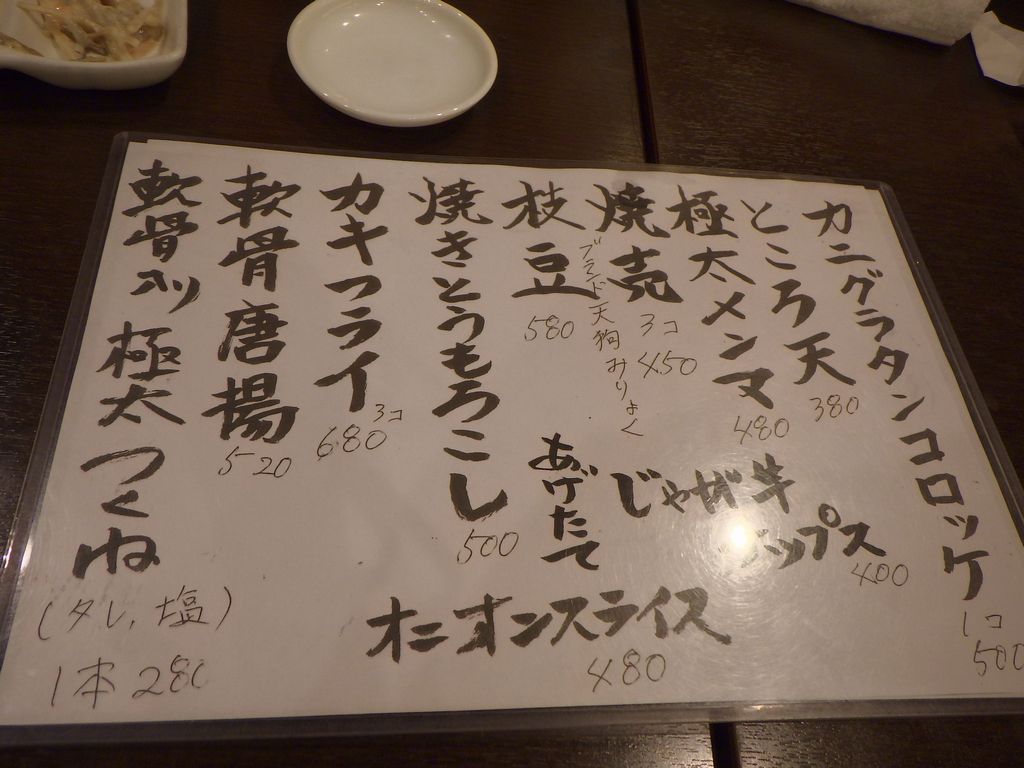 カニグラタンコロッケ
1コ
500
ところ天
380
極太メンマ
480
焼売
3コ
450
ブランド天狗
みりょく
枝豆
580
焼きとうもろこし
500
カキフライ
3コ
680
軟骨唐揚
520
軟骨入り極太つくね
(タレ、塩)
1本280
あげたて
じゃが
チップス
400
オニオンスライス
480